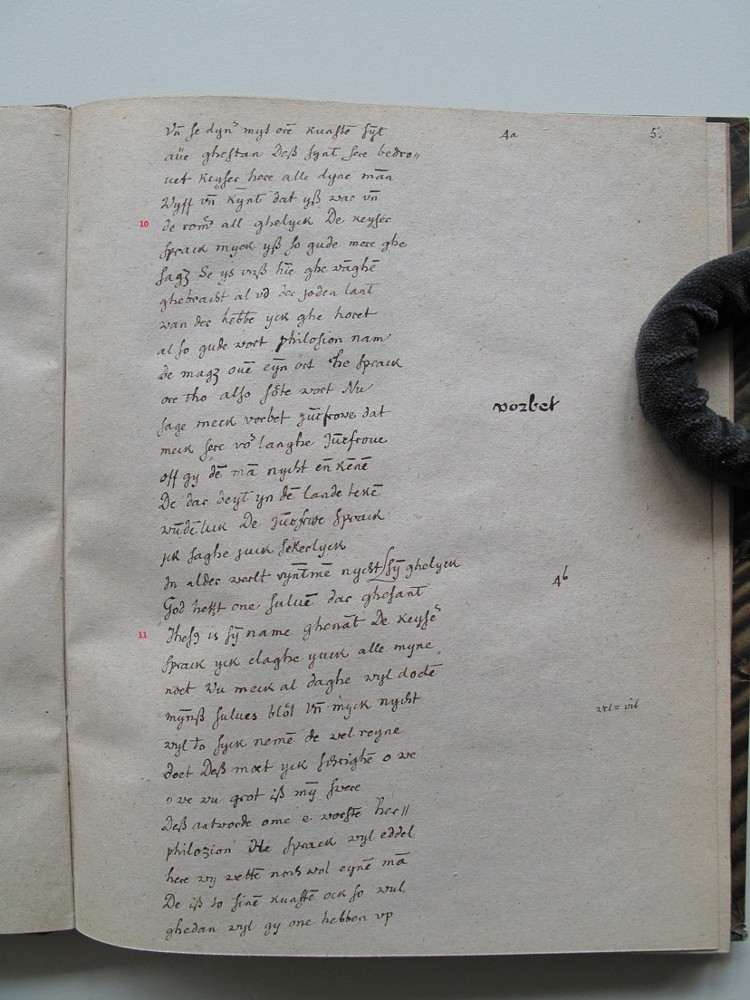 4a 5.
vn̄ se dyn' myt orē kunstē syt
auē ghestan Deß synt sere bedro〃
uet keyser here alle dyne mān
Wyff vn̄ kynt dat yß war vn̄
10 de rom̄ all ghelyck De keyser
sprack myck yß so gude mere ghe
sagz Se ys vnß hīe ghe vāghē
ghebracht al vd der joden lant
van der hebbe yck ghe horet
al so gude wort philosion nam
De magz ouē eyn ort he sprack
ore tho also sote wort Nu
sage meck vorbet jūcfrowe dat
vorbet
meck sere vo' langhe Jūcfroue
off gy dē mā nycht en kēnē
De dar deyt yn dē lande tekē
wūdēluck De jūcfrwe sprack
jck saghe juck sekerlyck
In alder werlt vyntmē nycht sȳ ghelyck
4b
God hefft one suluē dar ghesant
11 Ihesꝫ is sȳ name ghenāt De keyse'
sprack yck claghe yuck alle myne
noet Nu meck al daghe wyl dode
mynß sulues blot Vn̄ myck nycht
wel = vil
wyl to syck nemē de wel reyne
doet Deß moet yck schrighē o we
o we wu grot iß mȳ swere
Deß antworde ome e vorste her〃
philozion He sprack wyl eddel
here wy wettē noch wol eynē mā
De iß so sinē kunstē ock so wul
ghedan wyl gy one hebben vp